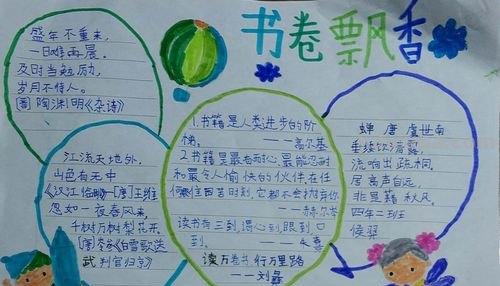 书卷飘香
盛年不重来,
一日难再晨。
及时当勉励,
岁月不待人。
陶渊明《杂诗》
江流天地外,
山色有无中
《汉江临眺》--[唐]王维
忽如一夜春风来,
千树万树梨花开。
[唐]岑参《白雪歌送
武判官归京》
1.书籍是人类进步的阶
梯。 ——高尔基
2.书籍是最有耐心,最能忍耐
和最令人愉快的伙伴,在任
何艰难困苦时刻,它都不会抛弃你
读书有三到,谓心到,眼到口
到。 ——朱熹
读万卷书 行万里路
——刘彝
蝉 唐 虞世南
垂緌饮清露,
流响出疏桐。
居高声自远,
非是籍秋风。
四年二班
侯